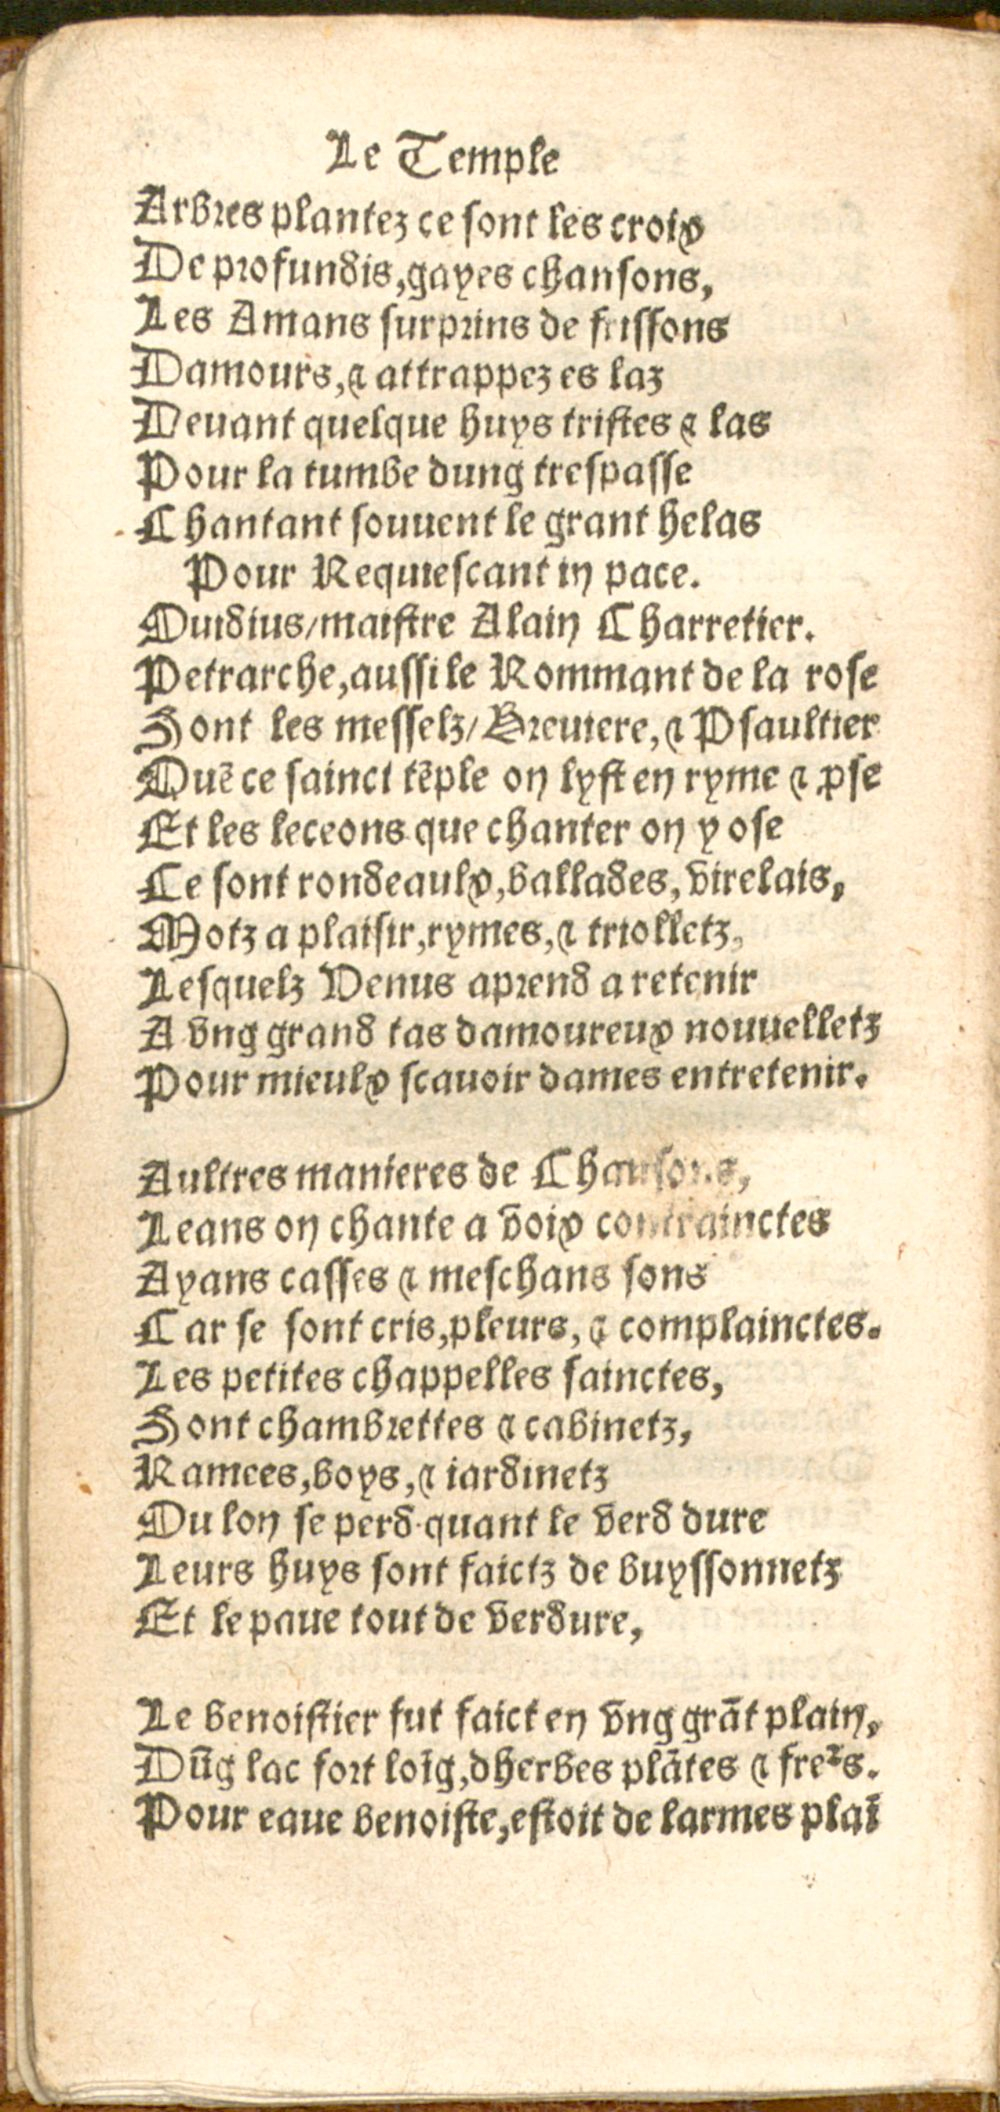 Le Temple
Arbres plantez ce sont les croix
De profundis, gayes chansons,
Les Amans surprins de frissons
Damours, & attrappez es laz
Deuant quelque huys tristes & las
Pour la tumbe dung trespasse
Chantant souuent le grant helas
Pour Requiescant in pace.
Ouidius/maistre Alain Charretier.
Petrarche, aussi le Rommant de la rose
Sont les messelz/Breuiere, & Psaultier
Quē ce sainct tēple on lyst en ryme & ꝓse
Et les leceons que chanter on y ose
Ce sont rondeaulx, ballades, virelais,
Motz a plaisir, rymes, & triolletz,
Lesquelz Venus aprend a retenir
A vng grand tas damoureux nouuelletz
Pour mieulx scauoir dames entretenir.
Aultres manieres de Chansons,
Leans on chante a voix contrainctes
Ayans casses & meschans sons
Car se sont cris, pleurs, & complainctes.
Les petites chappelles sainctes,
Sont chambrettes & cabinetz,
Ramees, boys, & iardinetz
Ou lon se perd quant le verd dure
Leurs huys sont faictz de buyssonnetz
Et le paue tout de verdure,
Le benoistier fut faict en vng grāt plain,
Dūg lac fort loīg, dherbes plātes & freꝛs.
Pour eaue benoiste, estoit de larmes plaī